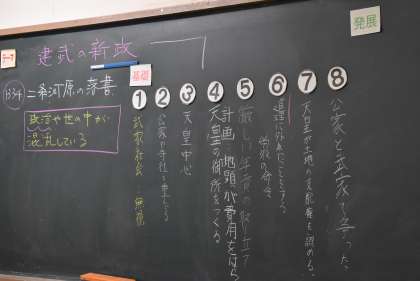 発展
テーマ
建武の新政
基礎
1334 二条河原の落書
政治や世の中が
混乱している
① 武家社会 無視
② 公家や寺社を重んじる
③ 天皇中心
④ 天皇の御所をつくる
計画…地頭が費用をはらう
⑤ 厳しい年貢の取り立て
⑥
⑦ 天皇が土地の支配権を認める。
⑧ 公家と武家で争った。